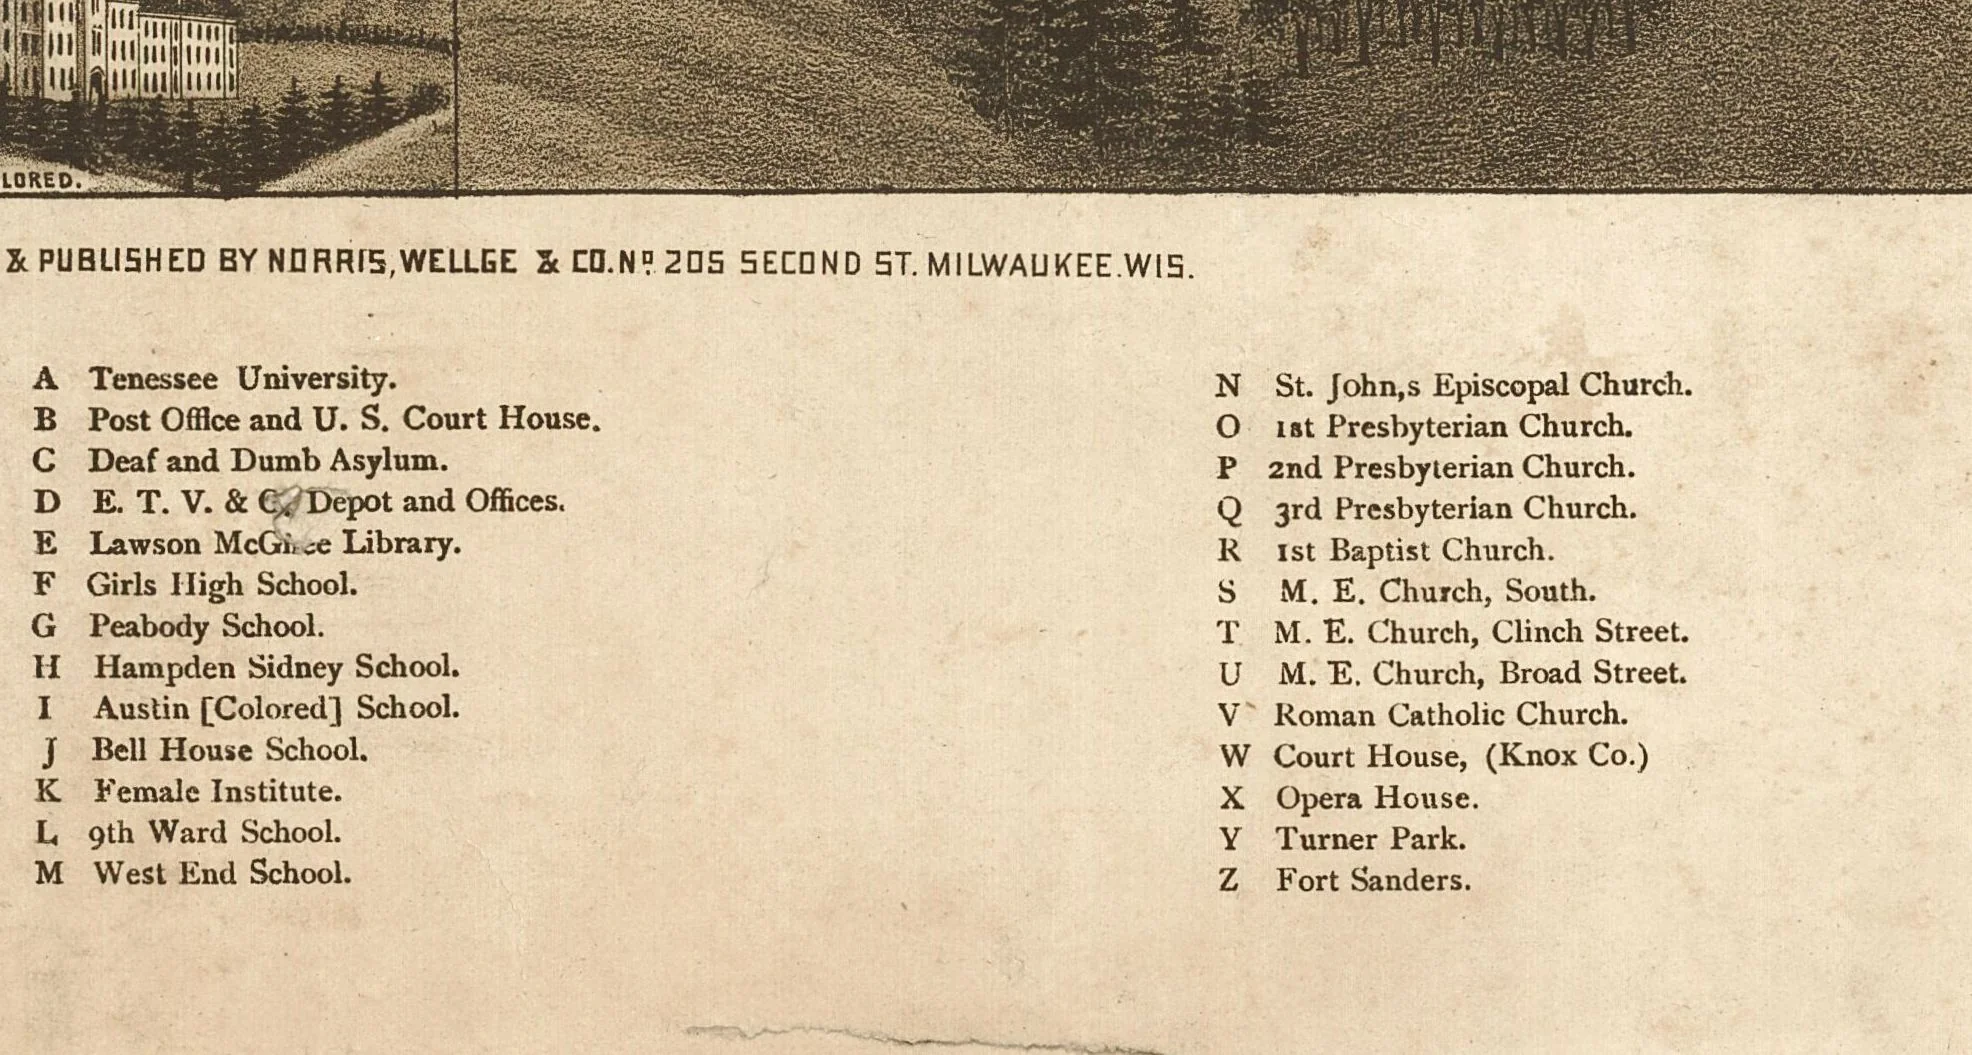 LORED.
& PUBLISHED BY NORRIS, WELLGE & CO. Nº 205 SECOND ST. MILWAUKEE. WIS.
A Tenessee University.
B Post Office and U. S. Court House.
C Deaf and Dumb Asylum.
D E. T. V. & C. Depot and Offices.
E Lawson Library.
F Girls High School.
G Peabody School.
H Hampden Sidney School.
I Austin [Colored] School.
J Bell House School.
K Female Institute.
L 9th Ward School.
M West End School.
N St. John,s Episcopal Church.
O 1st Presbyterian Church.
P 2nd Presbyterian Church.
Q 3rd Presbyterian Church.
R 1st Baptist Church.
S M. E. Church, South.
T M. E. Church, Clinch Street.
U M. E. Church, Broad Street.
V Roman Catholic Church.
W Court House, (Knox Co.)
X Opera House.
Y Turner Park.
Z Fort Sanders.